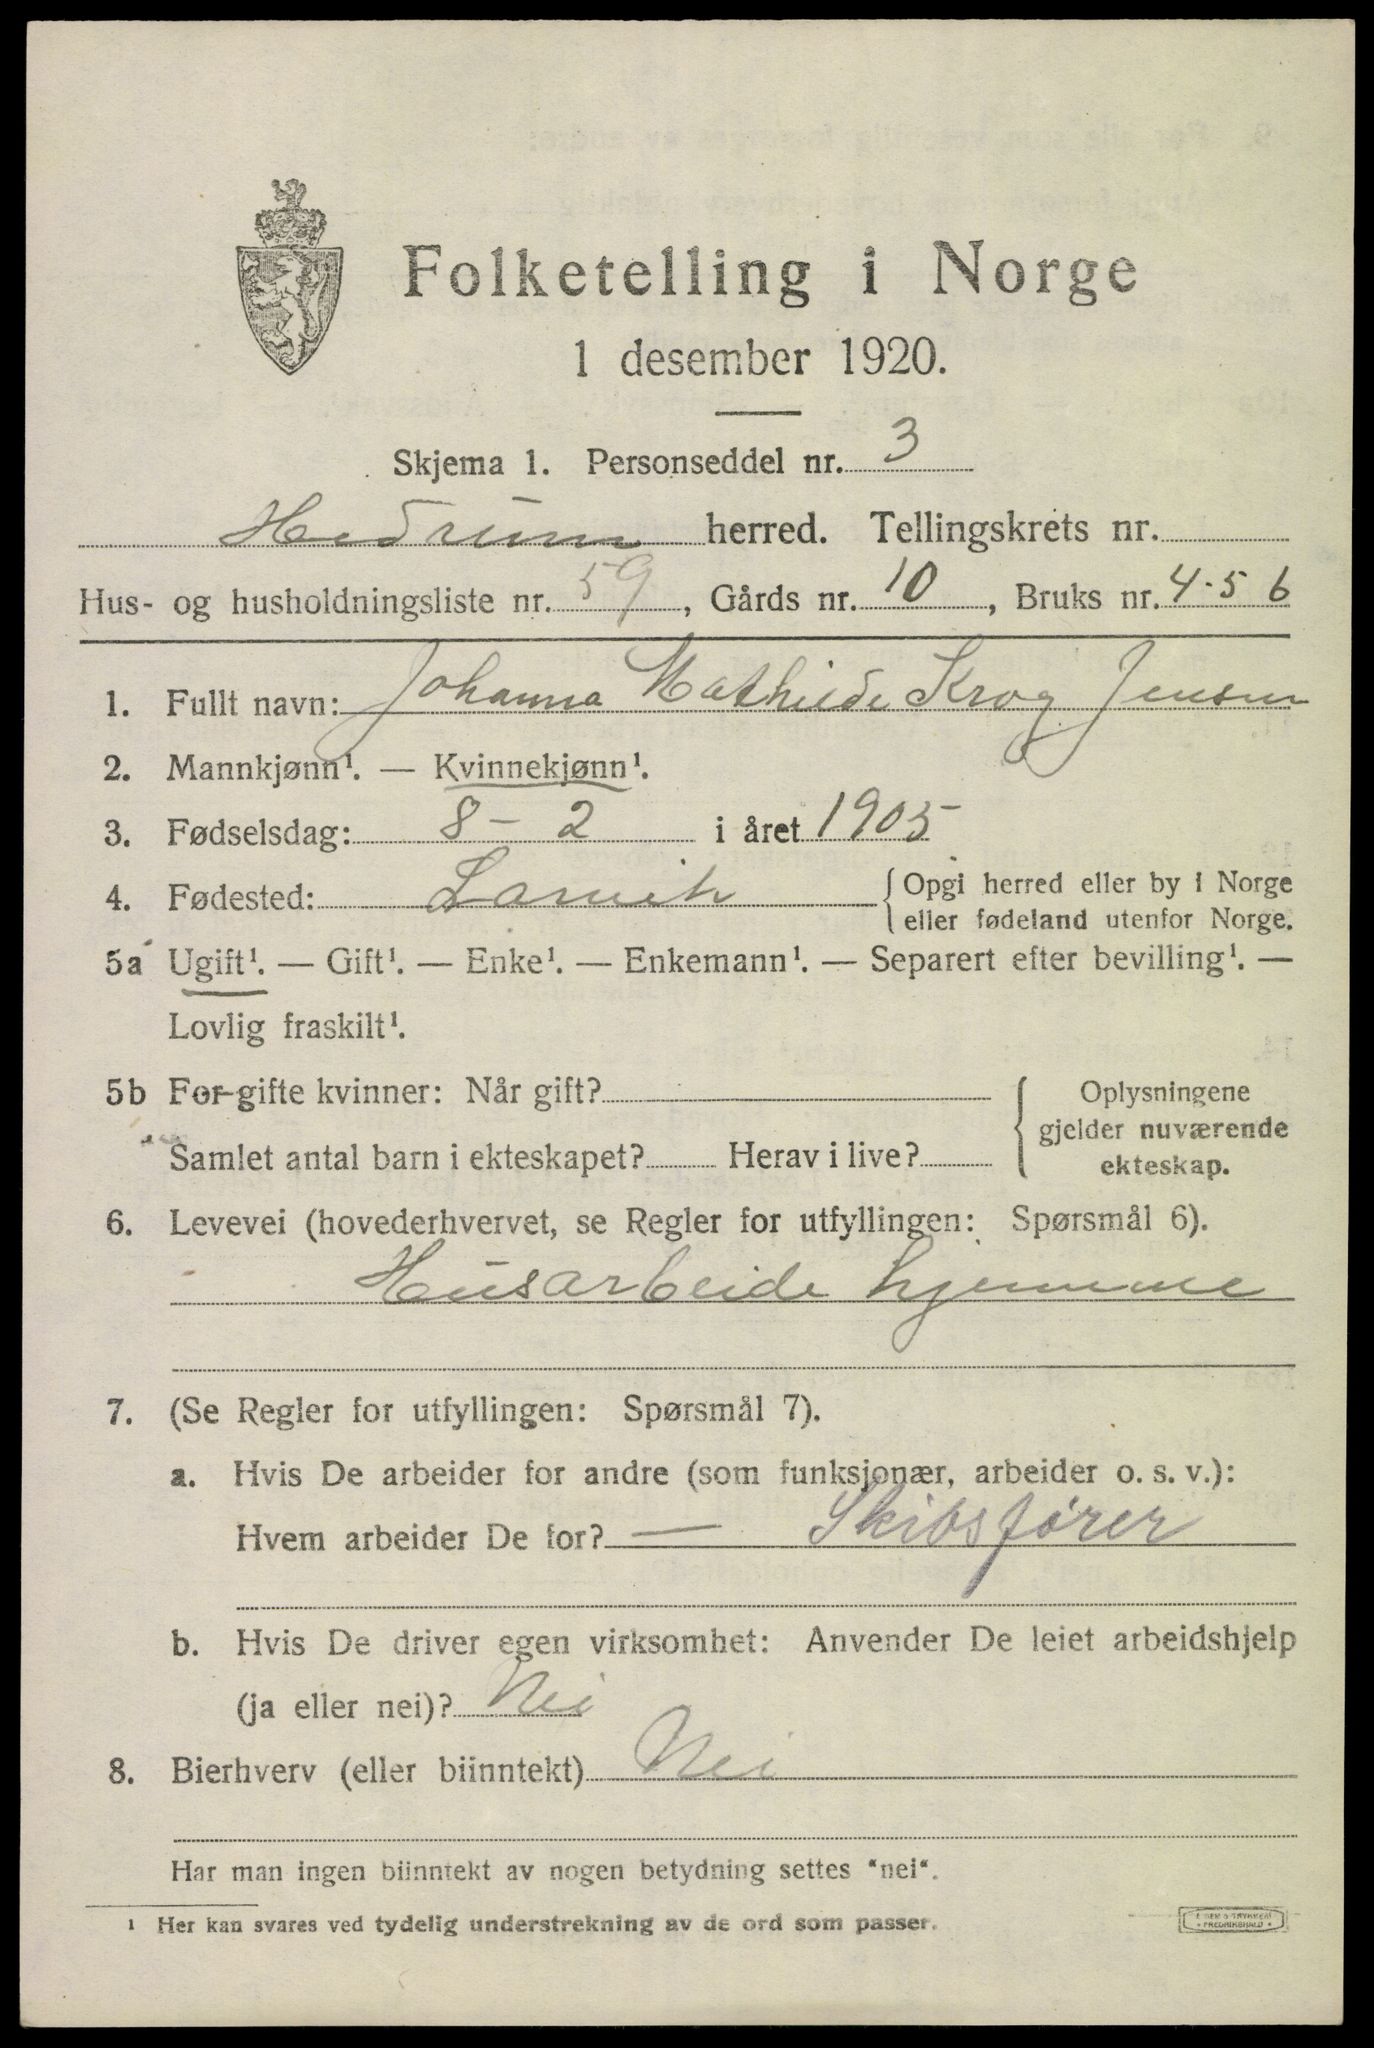 Folketelling i Norge
1 desember 1920.
Skjema 1. Personseddel nr. 3
Hedrum herred. Tellingskrets nr.
Hus- og husholdningsliste nr. 59, Gårds nr. 10, Bruks nr. 4-5 6
1. Fullt navn: Johanna Mathilde Krog Jensen
2. Mannkjønn¹. — Kvinnekjønn¹.
3. Fødselsdag: 8 - 2 i året 1905
4. Fødested: Larvik { Opgi herred eller by i Norge
eller fødeland utenfor Norge.
5a Ugift¹. — Gift¹. — Enke¹. — Enkemann¹. — Separert efter bevilling¹. —
Lovlig fraskilt¹.
5b For gifte kvinner: Når gift?
Samlet antal barn i ekteskapet? Herav i live?
{ Oplysningene
gjelder nuværende
ekteskap.
6. Levevei (hovederhvervet, se Regler for utfyllingen: Spørsmål 6).
Husarbeide hjemme
7. (Se Regler for utfyllingen: Spørsmål 7).
a. Hvis De arbeider for andre (som funksjonær, arbeider o. s. v.):
Hvem arbeider De for? — Skibsfører
b. Hvis De driver egen virksomhet: Anvender De leiet arbeidshjelp
(ja eller nei)? Nei
8. Bierhverv (eller biinntekt) Nei
Har man ingen biinntekt av nogen betydning settes "nei".
¹ Her kan svares ved tydelig understrekning av de ord som passer.
FREDRIKSHALD